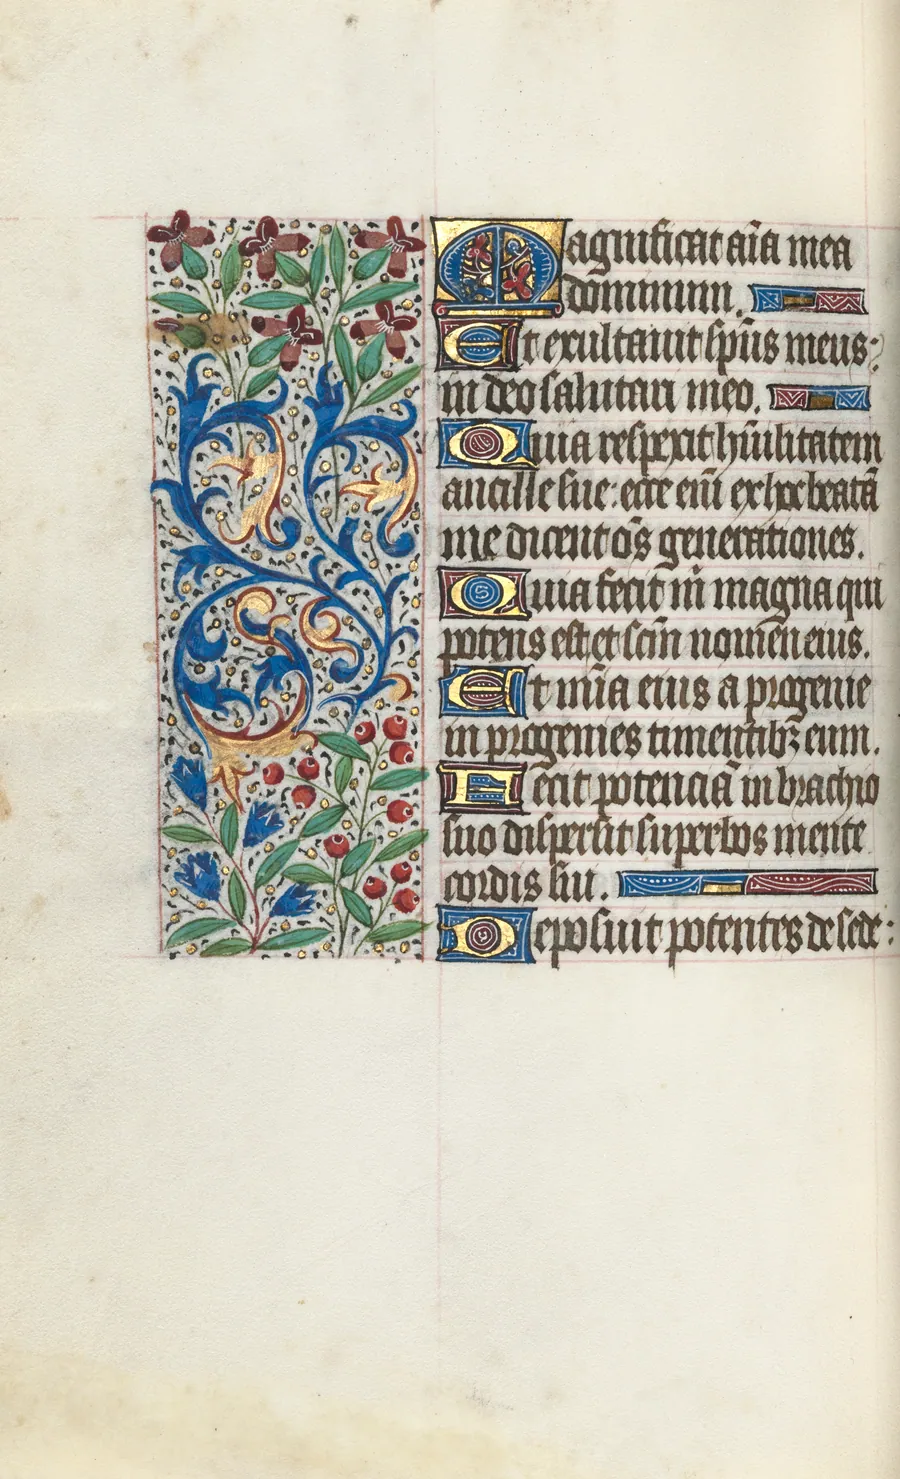 Magnificat aīa mea
dominum.
Et exultauit sp̄us meus:
in deo salutari meo.
Quia respexit hūilitatem
ancille sue: ecce eni̅ ex hoc beatā
me dicent os̄ generationes.
Quia fecit m̄ magna qui
potens est: et scm̄ nomen eius.
Et mīa eius a progenie
in progenies timentibꝫ eum.
Fecit potenciā in brachio
suo dispersit superbos mente
cordis sui.
Deposuit potentes de sede: